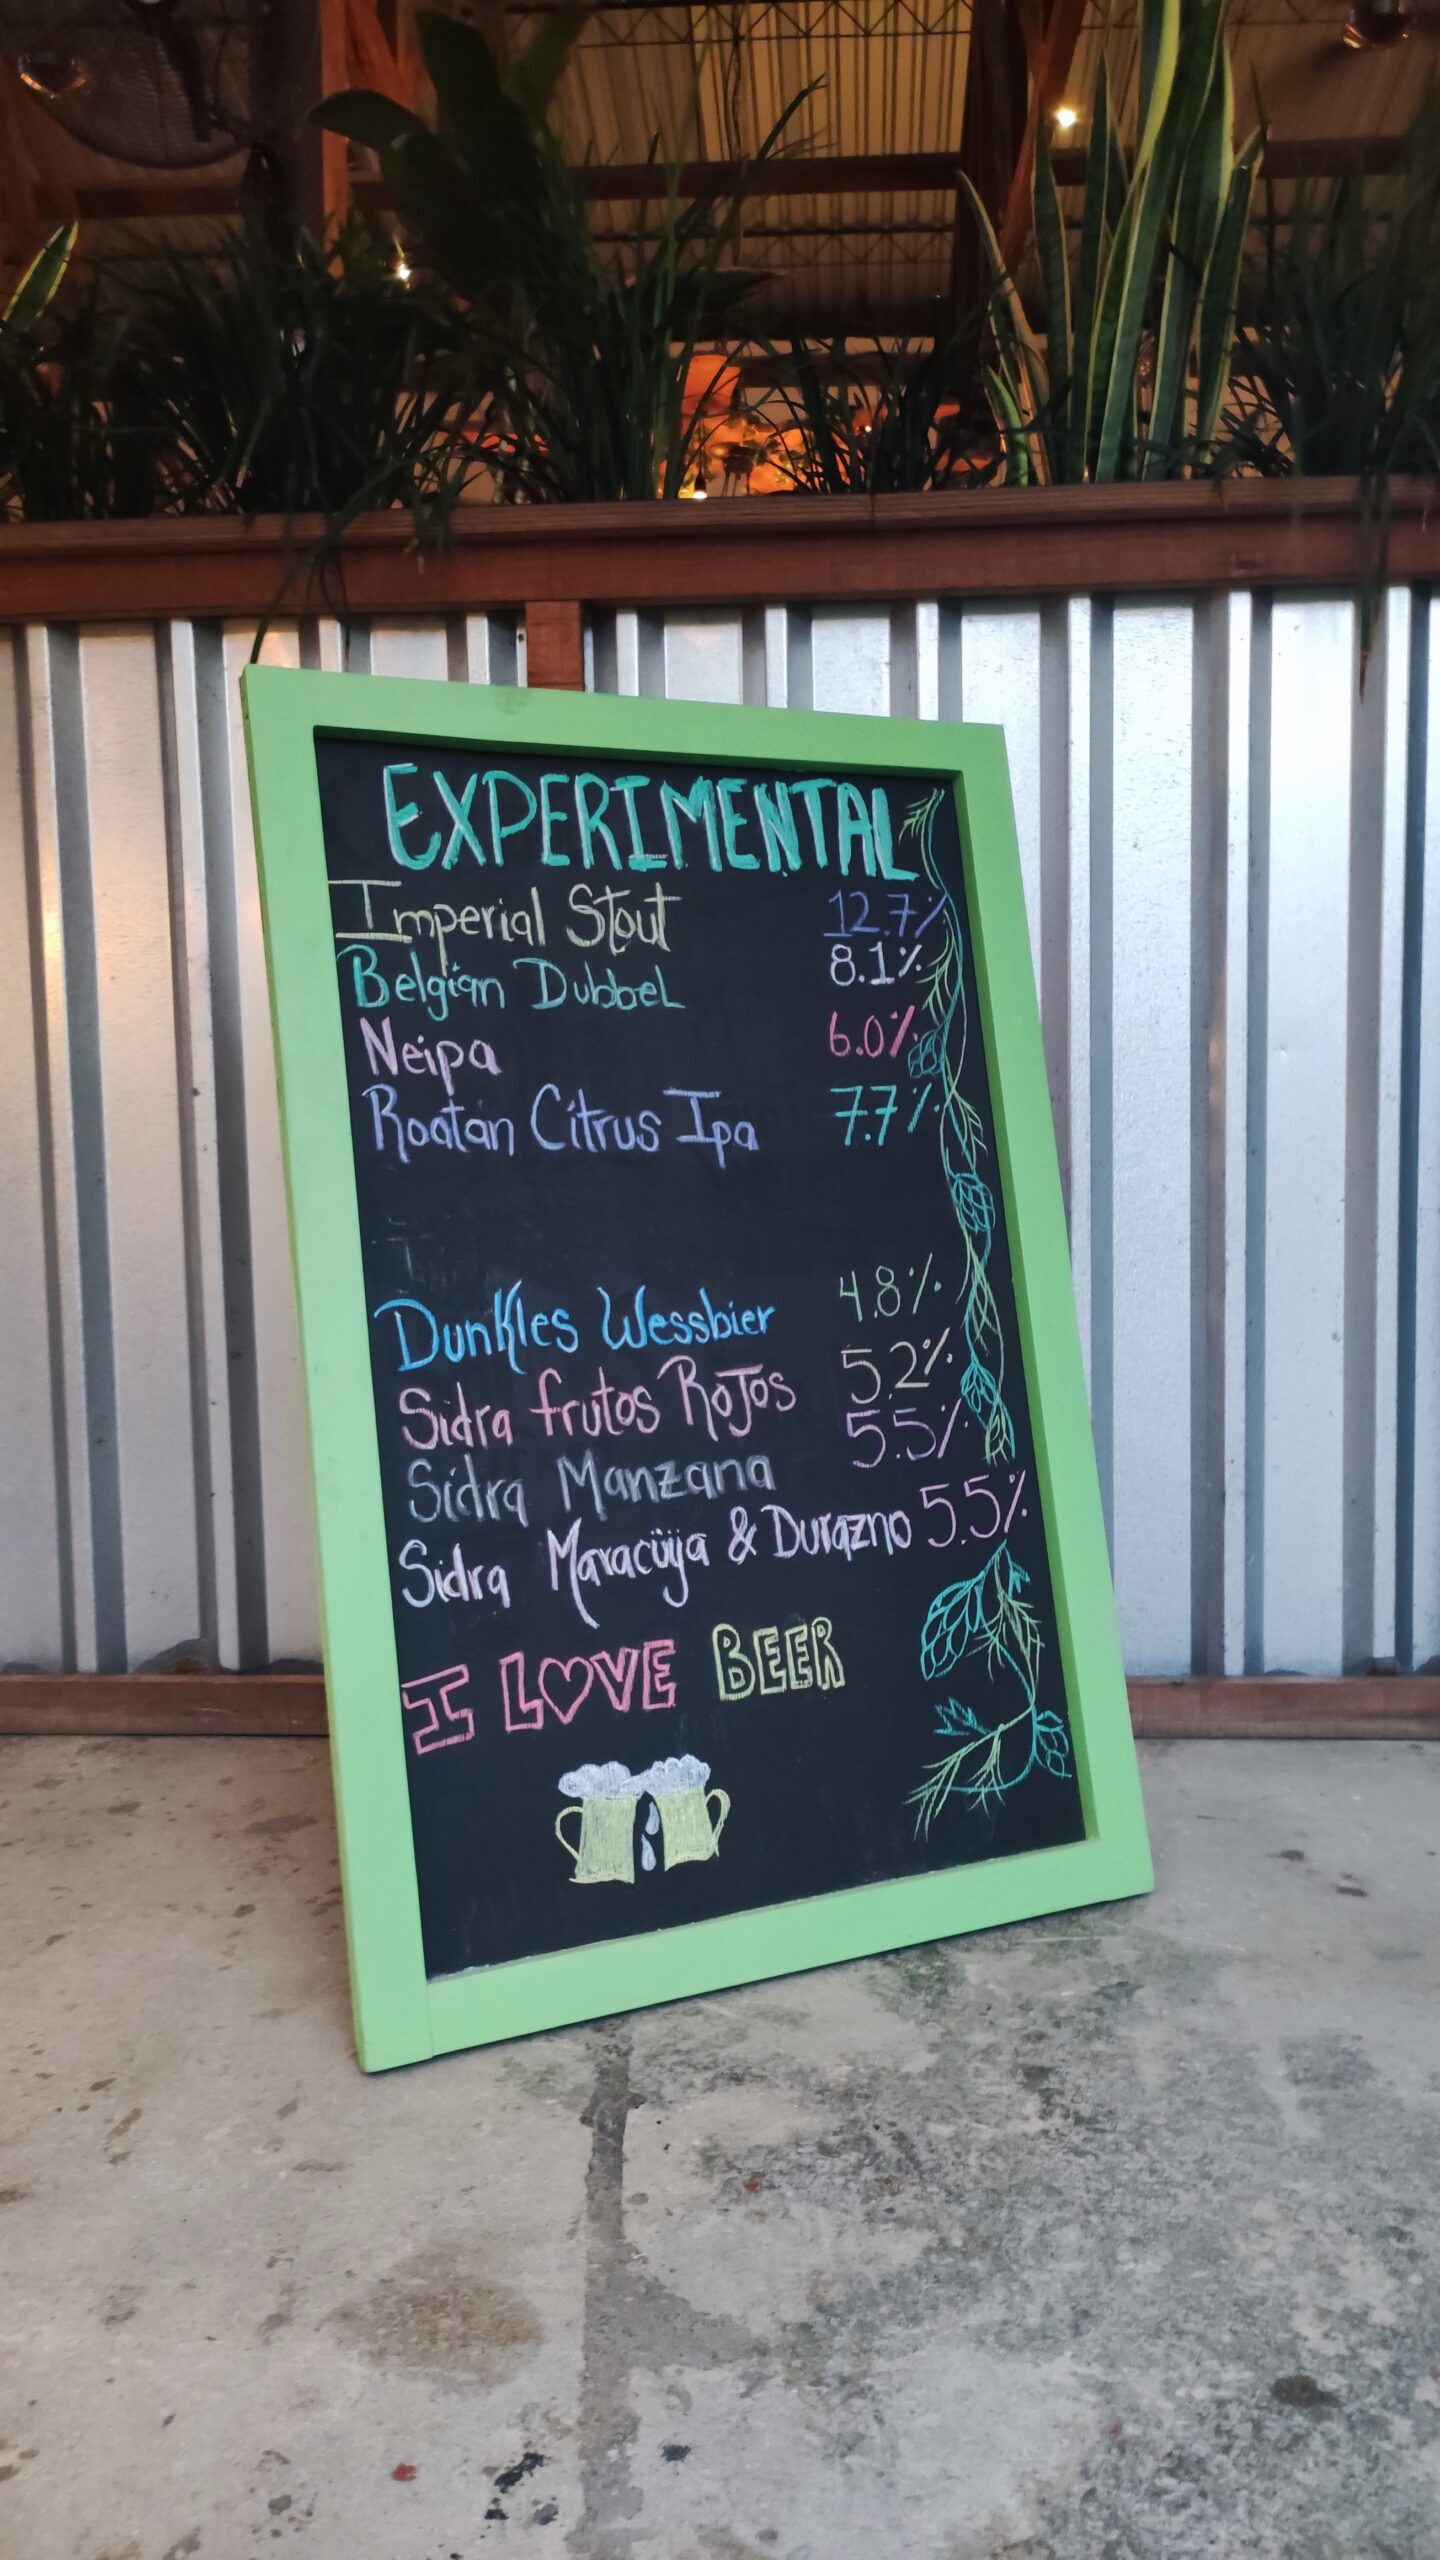 EXPERIMENTAL
Imperial Stout 12.7%
Belgian Dubbel 8.1%
Neipa 6.0%
Roatán Citrus Ipa 7.7%
Dunkles Wessbier 4.8%
Sidra frutos Rojos 5.2%
Sidra Manzana 5.5%
Sidra Maracüija & Durazno 5.5%
I LOVE BEER